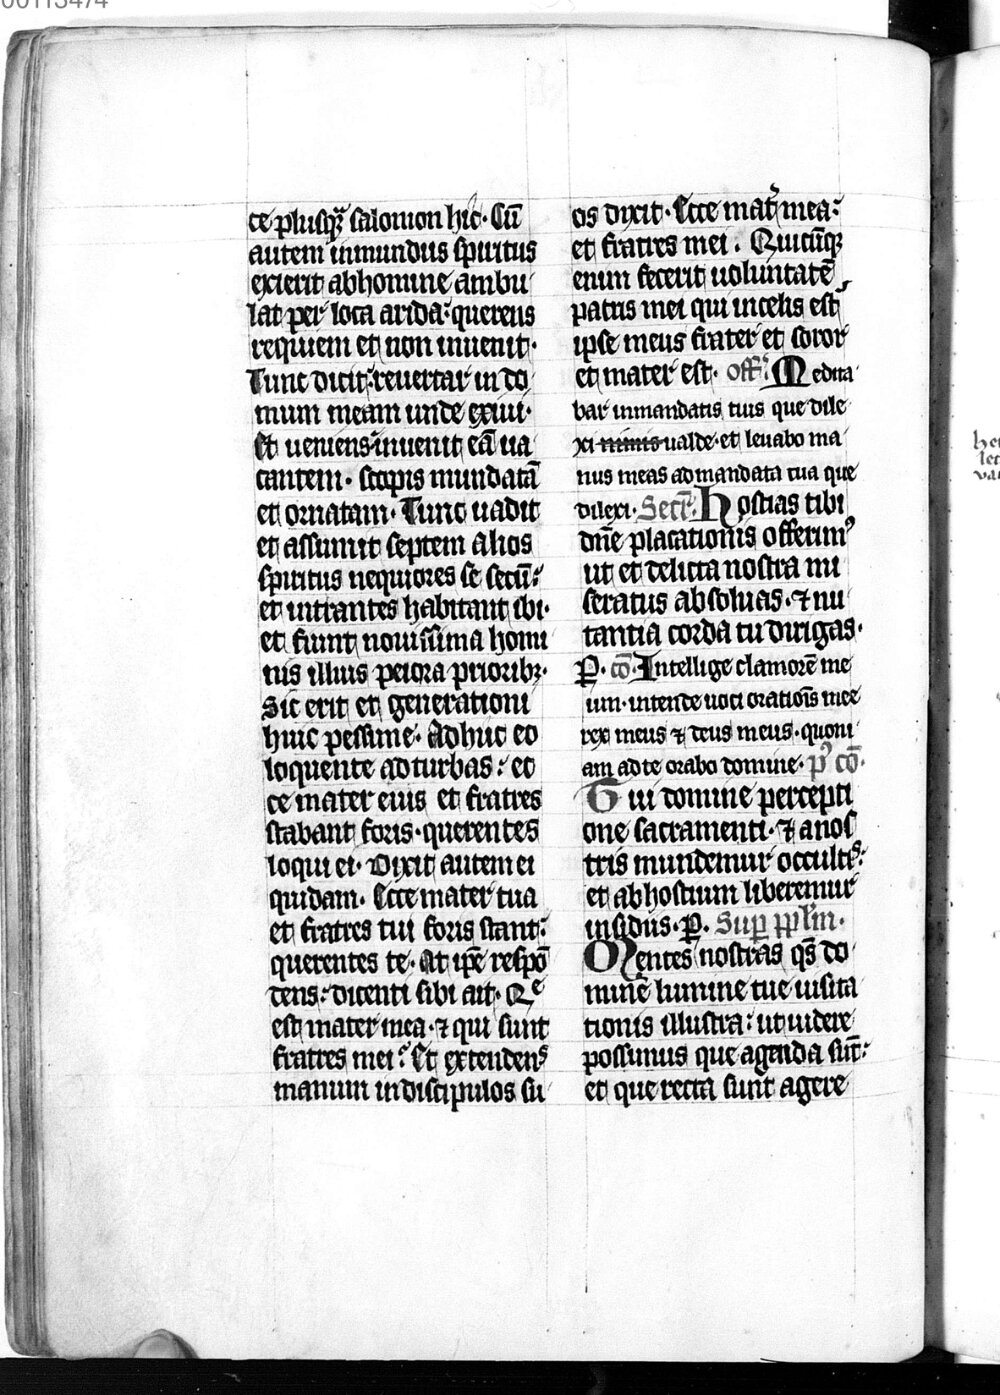 00113474
ce plusqᷓ salomon hic· Cū
autem inmundus spiritus
exierit abhomine ambu
lat per loca arida: querens
requiem et non inuenit·
Tunc dicit: reuertar in do
mum meam unde exiui·
Et ueniens inuenit eā ua
cantem· scopis mundatā
et ornatam· Tunc uadit
et assumit septem alios
spiritus nequiores se secū:
et intrantes habitant ibi·
et fiunt nouissima homi
nis illius peiora prioribꝫ·
Sic erit et generationi
huic pessime· Adhuc eo
loquente ad turbas: ec
ce mater eius et fratres
stabant foris· querentes
loqui ei· Dixit autem ei
quidam· Ecce mater tua
et fratres tui foris stant:
querentes te· At ip̄e respō
dens: dicenti sibi ait· Qͤ
est mater mea· ⁊ qui sunt
fratres mei? Et extendenˢ
manum in discipulos su
os dixit· Ecce mat᷑ mea:
et fratres mei· Quicūqꝫ
enim fecerit uoluntatē
patris mei qui incelis est
ipse meus frater et soror
et mater est· off᷑· Medita
bar inmandatis tuis que dile
xi nimis ualde· et leuabo ma
nus meas ad mandata tua que
dilexi· Secr̄· Hostias tibi
dn̄e placationis offerimꝰ
ut et delicta nostra mi
seratus absoluas· ⁊ nu
tantia corda tu dirigas·
P· cō· Intellige clamorē me
um· intende uoci oratiōis mee
rex meus ⁊ deus meus· quoni
am ad te orabo domine· pꝰ cō·
Tui domine percepti
one sacramenti· ⁊ a nos
tris mundemur occultˢ:
et ab hostium liberemur
insidiis· P· Suꝑ ppl̄m·
Mentes nostras qs̄ do
mine lumine tue uisita
tionis illustra: ut uidere
possimus que agenda sūt:
et que recta sunt agere